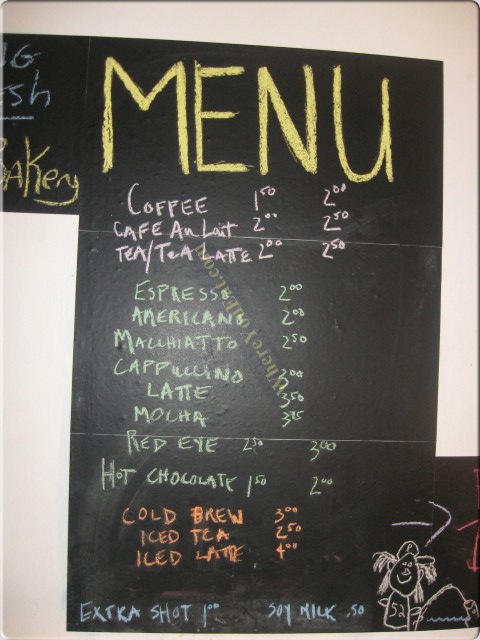 MENU
esh
BAKery
COFFEE 1.50 2.00
CAFE Au Lait 2.00 2.50
TEA/TEA LATTE 2.00 2.50
ESPRESSO 2.00
AMERICANO 2.00
MACCHIATTO 2.50
CAPPUCCINO 3.00
LATTE 3.50
MOCHA 3.75
RED EYE 2.50 3.00
HOT CHOCOLATE 1.50 2.00
COLD BREW 3.00
ICED TEA 2.50
ICED LATTE 4.00
EXTRA SHOT 1.00 SOY MILK .50
52
WhereYouEat.com